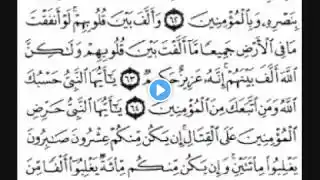 بِنَصْرِهِۦ وَبِالْمُؤْمِنِينَ ٦٢ وَأَلَّفَ بَيْنَ قُلُوبِهِمْ لَوْ أَنفَقْتَ
مَا فِي الْأَرْضِ جَمِيعًا مَّا أَلَّفْتَ بَيْنَ قُلُوبِهِمْ وَلَٰكِنَّ
اللَّهَ أَلَّفَ بَيْنَهُمْ إِنَّهُۥ عَزِيزٌ حَكِيمٌ ٦٣ يَٰٓأَيُّهَا النَّبِيُّ حَسْبُكَ
اللَّهُ وَمَنِ اتَّبَعَكَ مِنَ الْمُؤْمِنِينَ ٦٤ يَٰٓأَيُّهَا النَّبِيُّ حَرِّضِ
الْمُؤْمِنِينَ عَلَى الْقِتَالِ إِن يَكُن مِّنكُمْ عِشْرُونَ صَٰبِرُونَ
يَغْلِبُوا۟ مِا۟ئَتَيْنِ وَإِن يَكُن مِّنكُم مِّا۟ئَةٌ يَغْلِبُوٓا۟ أَلْفًا مِّنَ